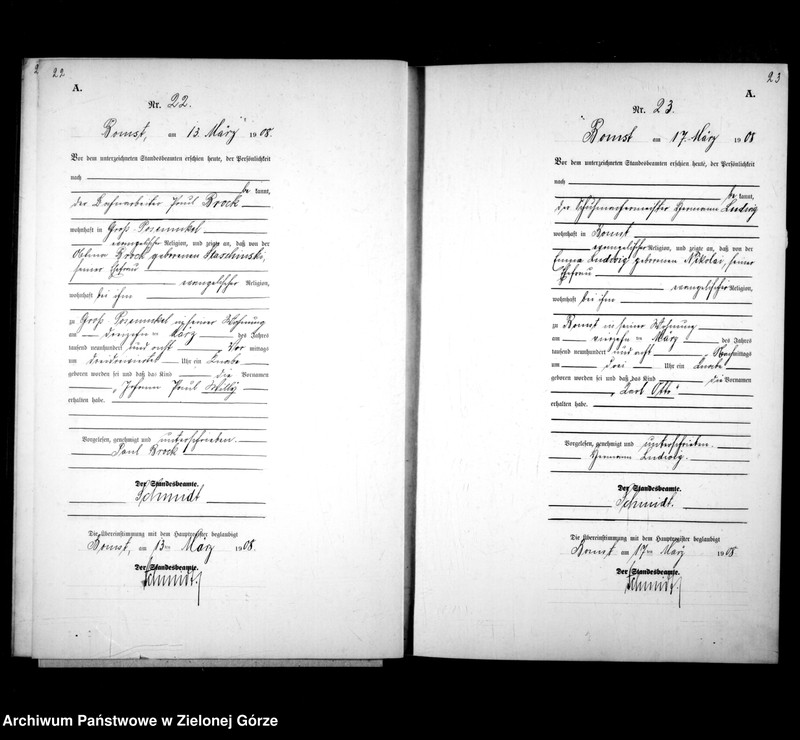 22
A.
Nr. 22.
Bomst, am 13. März 1908.
Vor dem unterzeichneten Standesbeamten erschien heute, der Persönlichkeit
nach
be kannt,
der Bahnarbeiter Paul Brock
wohnhaft in Groß-Posemukel
evangelischer Religion, und zeigte an, daß von der
Brock geborenen
seiner Ehefrau
evangelischer Religion,
wohnhaft bei ihm
zu Groß-Posemukel in seiner Wohnung
am dreizehn März des Jahres
tausend neunhundert und acht Vor mittags
um Uhr ein Knabe
geboren worden sei und daß das Kind die Vornamen
Johann Paul Willy
erhalten habe.
Vorgelesen, genehmigt und unterschrieben.
Paul Brock
Der Standesbeamte.
Schmidt
Die Übereinstimmung mit dem Hauptregister beglaubigt
Bomst, am 13ten März 1908.
Der Standesbeamte.
Schmidt
23
A.
Nr. 23.
Bomst am 17. März 1908
Vor dem unterzeichneten Standesbeamten erschien heute, der Persönlichkeit
nach
be kannt,
der Schuhmachermeister Hermann Ludwig
wohnhaft in Bomst
evangelischer Religion, und zeigte an, daß von der
Emma Ludwig geborenen Nikolai, seiner
Ehefrau
evangelischer Religion,
wohnhaft bei ihm
zu Bomst in seiner Wohnung
am März des Jahres
tausend neunhundert und acht Nachmittags
um drei Uhr ein Knabe
geboren worden sei und daß das Kind die Vornamen
Karl Otto
erhalten habe.
Vorgelesen, genehmigt und unterschrieben.
Hermann Ludwig.
Der Standesbeamte.
Schmidt.
Die Übereinstimmung mit dem Hauptregister beglaubigt
Bomst am 17ten März 1908.
Der Standesbeamte.
Schmidt
Archiwum Państwowe w Zielonej Górze